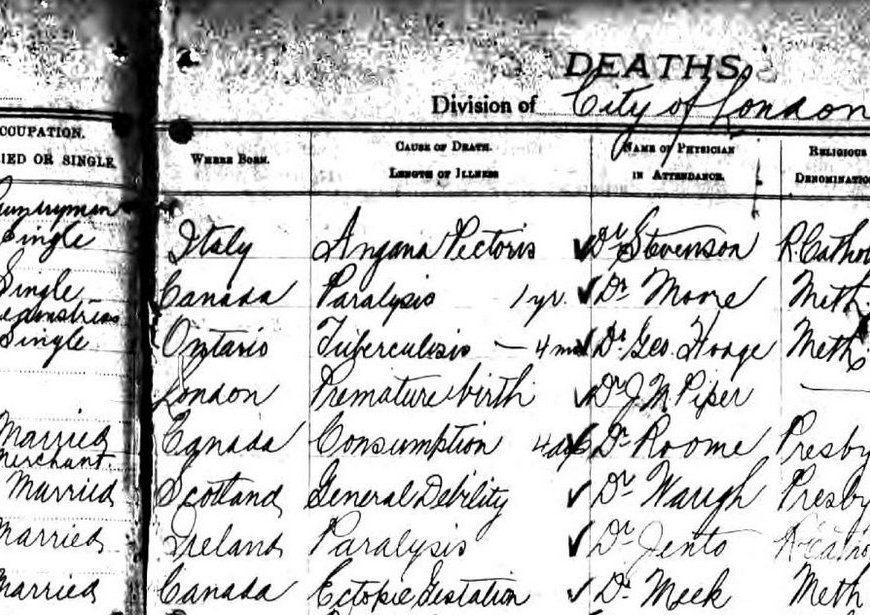 DEATHS
Division of City of London
CCUPATION.
IED OR SINGLE
WHERE BORN.
CAUSE OF DEATH.
LENGTH OF ILLNESS
NAME OF PHYSICIAN
IN ATTENDANCE.
RELIGIOUS
DENOMINATIO
Single Italy Angana Pectoris ✓ Dr Stevenson R. Cathol
Single Canada Paralysis 1 yr. ✓ Dr Moore Meth.
Single Ontario Tuberculosis — 4 m ✓ Dr Geo. Hodge Meth.
London Premature birth ✓ Dr J. M Piper —
Married Canada Consumption Dr Roome Presby
Merchant.
Married Scotland General Debility ✓ Dr Waugh Presby
Married Ireland Paralysis ✓ Dr Jento R Catho
Married Canada Ectopic Gestation ✓ Dr Meek Meth